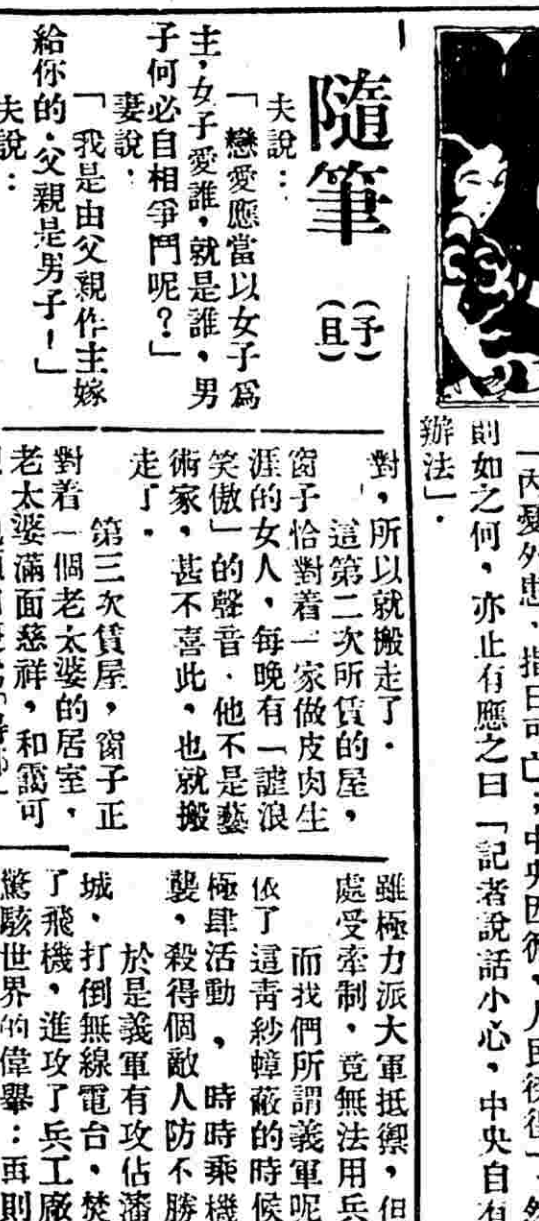 「內憂外患、指日可亡，中央因循，人民
則如之何，亦止有應之曰「記者說話小心，中央自有
辦法」．
隨筆
（予）
（且）
夫說：
「戀愛應當以女子為
主，女子愛誰，就是誰，男
子何必自相爭鬥呢？」
妻說．
「我是由父親作主嫁
給你的．父親是男子！」
夫說：
對，所以就搬走了．
這第二次所賃的屋，
窗子恰對着一家做皮肉生
涯的女人，每晚有「謔浪
笑傲」的聲音．他不是藝
術家，甚不喜此，也就搬
走了．
第三次賃屋，窗子正
對着一個老太婆的居室，
老太婆滿面慈祥，和靄可
雖極力派大軍抵禦，但
處受牽制，竟無法用兵
而找們所謂義軍呢
依了這靑紗幛蔽的時候
極肆活動，時時乘機
襲，殺得個敵人防不勝
於是義軍有攻佔瀋
城、打倒無線電台，焚
了飛機，進攻了兵工廠
驚駭世界的偉舉：再則